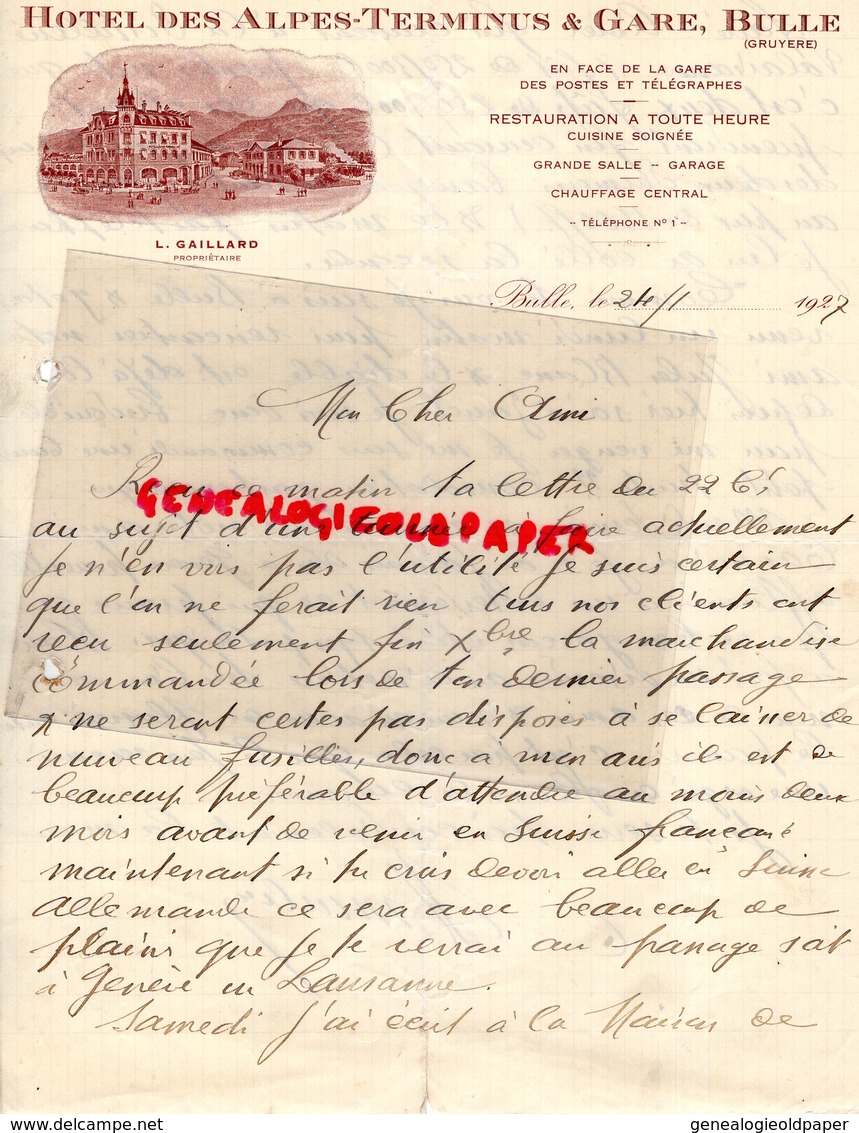 HOTEL DES ALPES-TERMINUS & GARE, BULLE
(GRUYERE)
EN FACE DE LA GARE
DES POSTES ET TÉLÉGRAPHES
RESTAURATION A TOUTE HEURE
CUISINE SOIGNÉE
GRANDE SALLE -- GARAGE
CHAUFFAGE CENTRAL
-- TÉLÉPHONE Nº 1 --
L. GAILLARD
PROPRIÉTAIRE
Bulle, le 24/1 1927
Mon Cher Ami
Reçu ce matin ta lettre du 22 Ct
GENEALOGIEOLDPAPER
au sujet d'une tournée à faire actuellement
Je n'en vois pas l'utilité Je suis certain
que l'on ne ferait rien tous nos clients ont
reçu seulement fin Xbre la marchandise
commandée lors de ton dernier passage
& ne seront certes pas disposés à se laisser de
nouveau fusilles, donc à mon avis il est de
beaucoup préférable d'attendre au moins deux
mois avant de venir en Suisse française
maintenant si tu crois devoir aller en Suisse
allemande ce sera avec beaucoup de
plaisir que je te verrai au passage soit
à Genève ou Lausanne.
Samedi j'ai écrit à la Maison de
delcampe.net
genealogieoldpaper